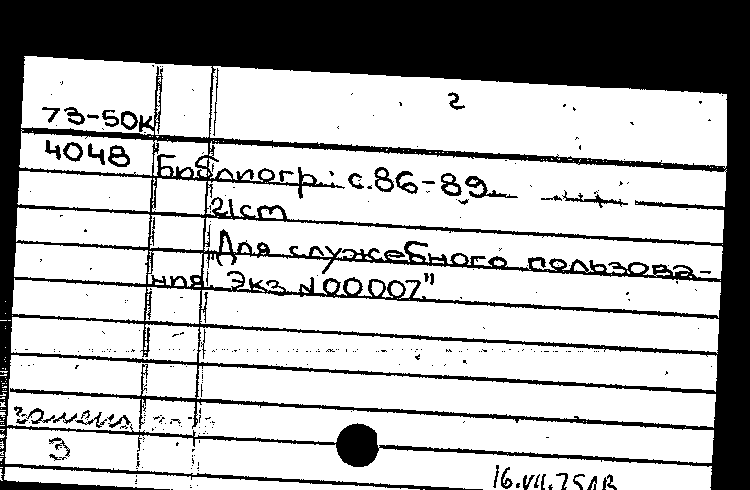 2
73-50к
4048 Библиогр.: с.86-89.
21cm
Для служебного пользова-
ния. Экз N00007."
замена
3
16.VII.75